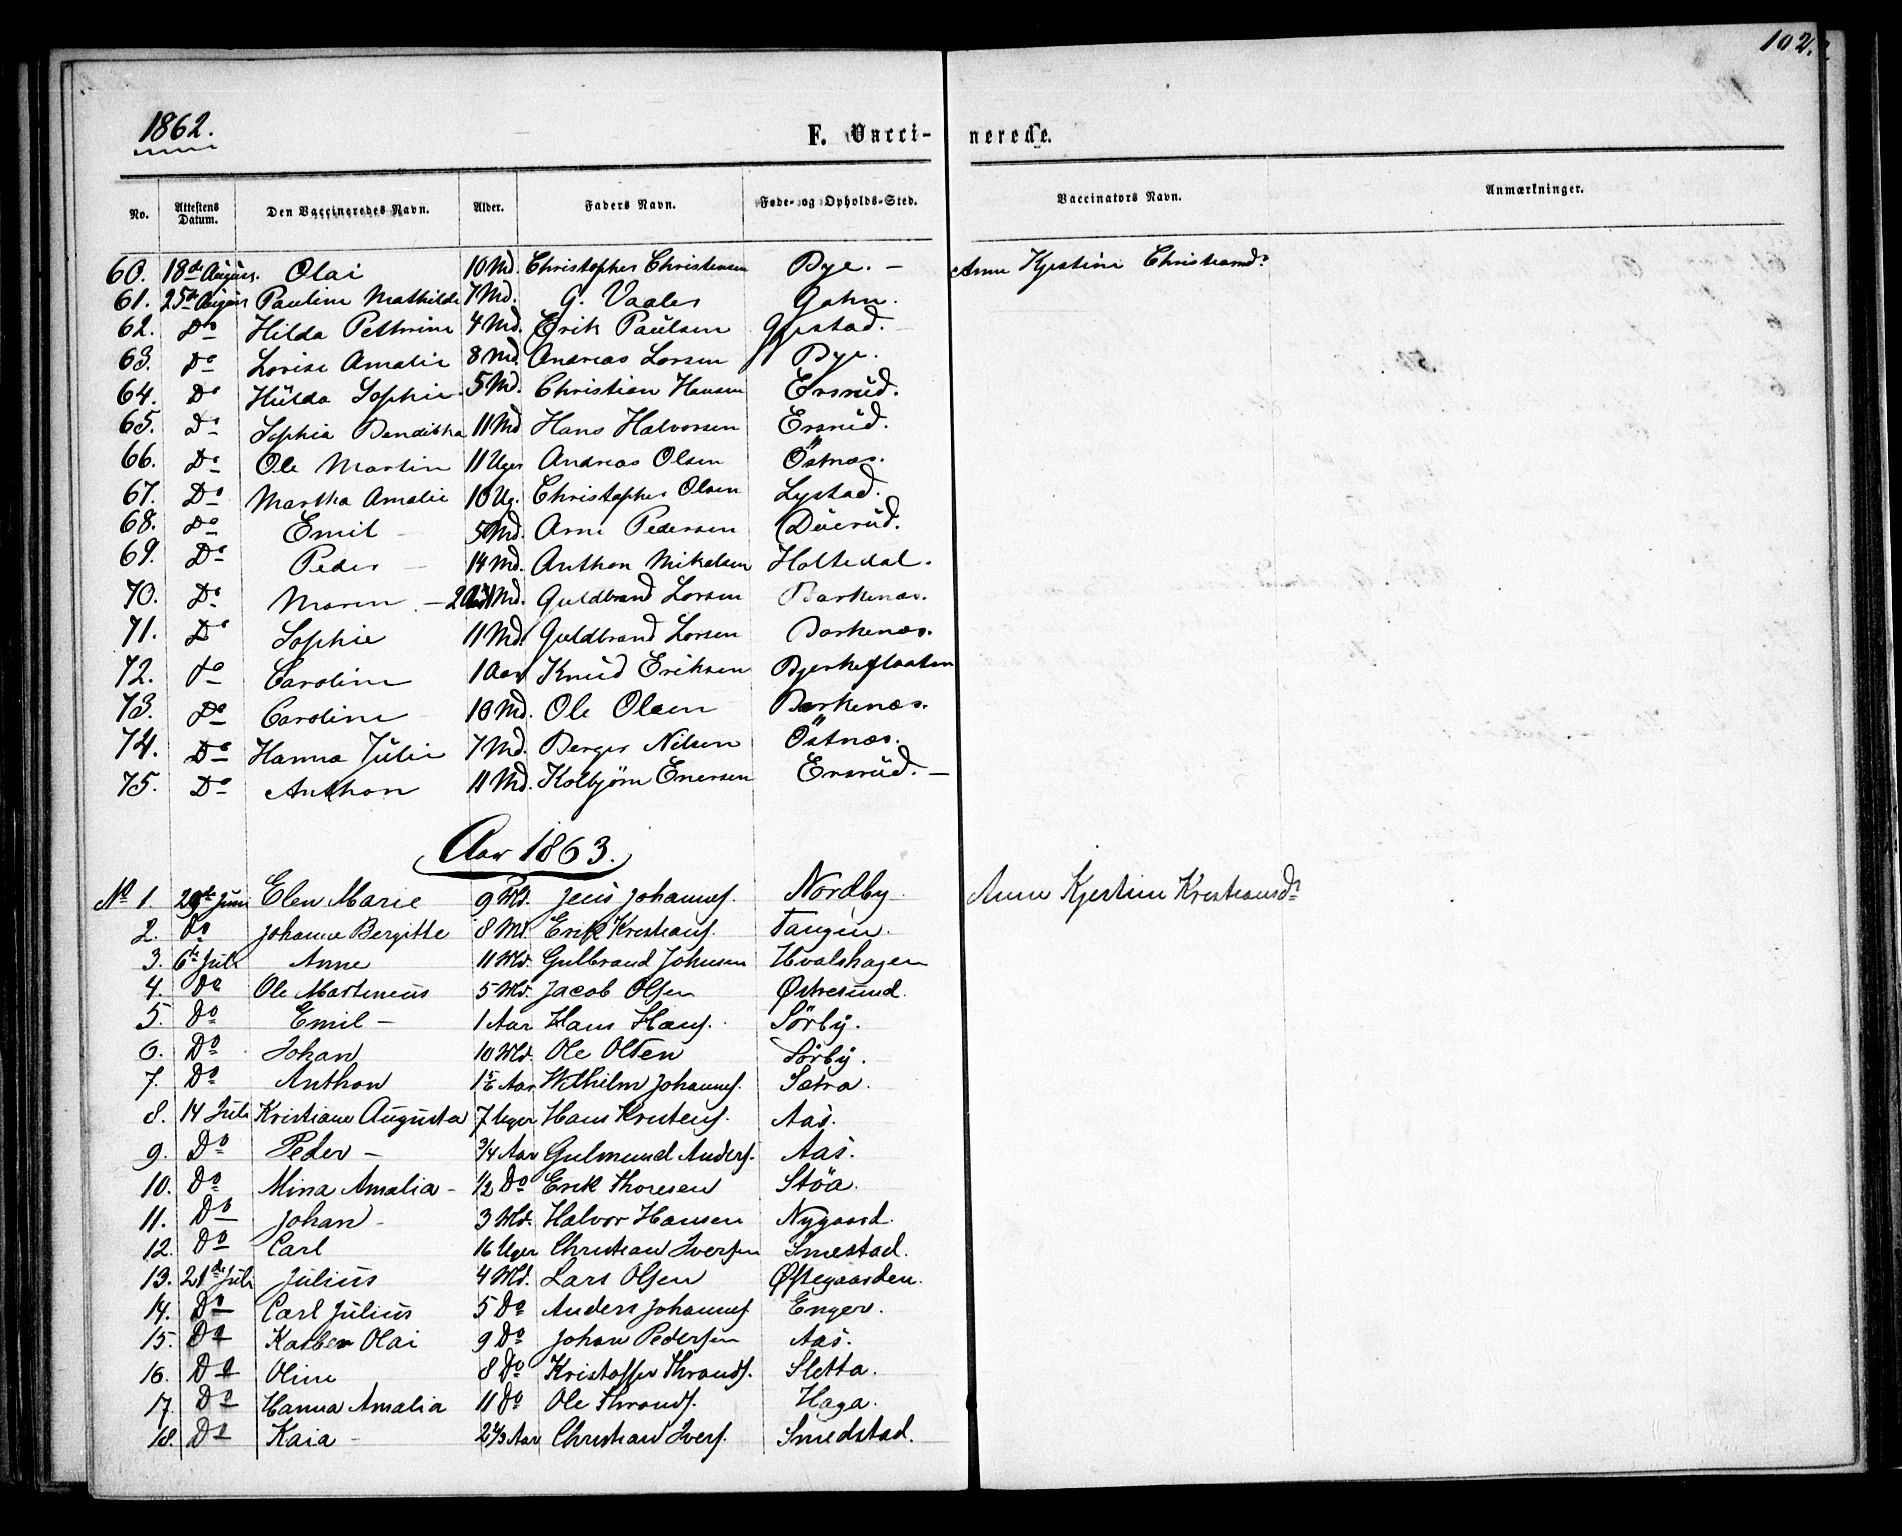 102.
1862.
F. Vacci- nerede.
No. Attestens Datum. Den Vaccineredes Navn. Alder. Faders Navn. Føde- og Opholds-Sted. Vaccinators Navn. Anmærkninger.
60. 18de August. Olai 10 Md. Christopher Christensen Bye. — Anne Kjestine Christiansd.
61. 25de August Pauline Mathilde 7 Md. G. Vaaler Gahn.
62. Do Hilda Pethrine 4 Md. Erik Paulsen Gjestad.
63. Do Lovise Amalie 8 Md. Andreas Larsen Bye.
64. Do Hulda Sophie 5 Md. Christian Hansen Ersrud.
65. Do Sophia Bendikka 11 Md Hans Halvorsen Ersrud.
66. Do Ole Martin 11 Uger Andreas Olsen Östnes.
67. Do Martha Amalie 10 Ug. Christopher Olsen Lystad.
68. Do Emil — 5 Md. Arne Pedersen
69. Do Peder — 14 Md. Anthon Mikelsen Holtedal.
70. Do Maren — Guldbrand Larsen Barkenæs.
71. Do Sophie 11 Md. Guldbrand Larsen Barkenæs.
72. Do Caroline 1 Aar Knud Eriksen Bjerkeflaaten
73. Do Caroline 10 Md. Ole Olsen Barkenæs.
74. Do Hanna Julie 7 Md. Berger Nilsen Östnæs.
75. Do Anthon 11 Md. Kolbjörn Enersen Ersrud. —
Aar 1863.
No 1. 29de Juni Elen Marie 9 Md. Jens Johannes. Nordby Anne Kjerstine Kristiansd.
2. Do Johanne Bergitte 8 Md. Erik Kristians. Tangen.
3. 6te Juli Anne 11 Md. Gulbrand Johnsen Hvalshagen
4. Do Ole Martinius 5 Md. Jacob Olsen Østresund.
5. Do Emil — 1 Aar Hans Hans. Sörby.
6. Do Johan 10 Md. Ole Olsen Sörby.
7. Do Anthon 1 5/6 Aar Wilhelm Johannes. Sætra.
8. 14 Juli Kristiane Augusta 7 Uger Hans Kristens. Aas.
9. Do Peder — 3/4 Aar Gulmund Anders. Aas.
10. Do Mina Amalia — 1/2 Do Erik Thoresen Stöa.
11. Do Johan — 3 Md. Halvor Hansen Nygaard.
12. Do Carl 16 Uger Christian Iversen Smestad.
13. 21de Juli Julius 4 Md. Lars Olsen Øftegaarden.
14. Do Carl Julius 5 Do Anders Johannes. Enger.
15. Do Karben Olai 9 Do Johan Pedersen Aas.
16. Do Oline 8 Do Kristoffer Thronds. Sletta.
17. Do Hanna Amalia 11 Do Ole Thronds. Haga.
18. Do Kaia — 2 1/3 Aar Christian Ivers. Smedstad.